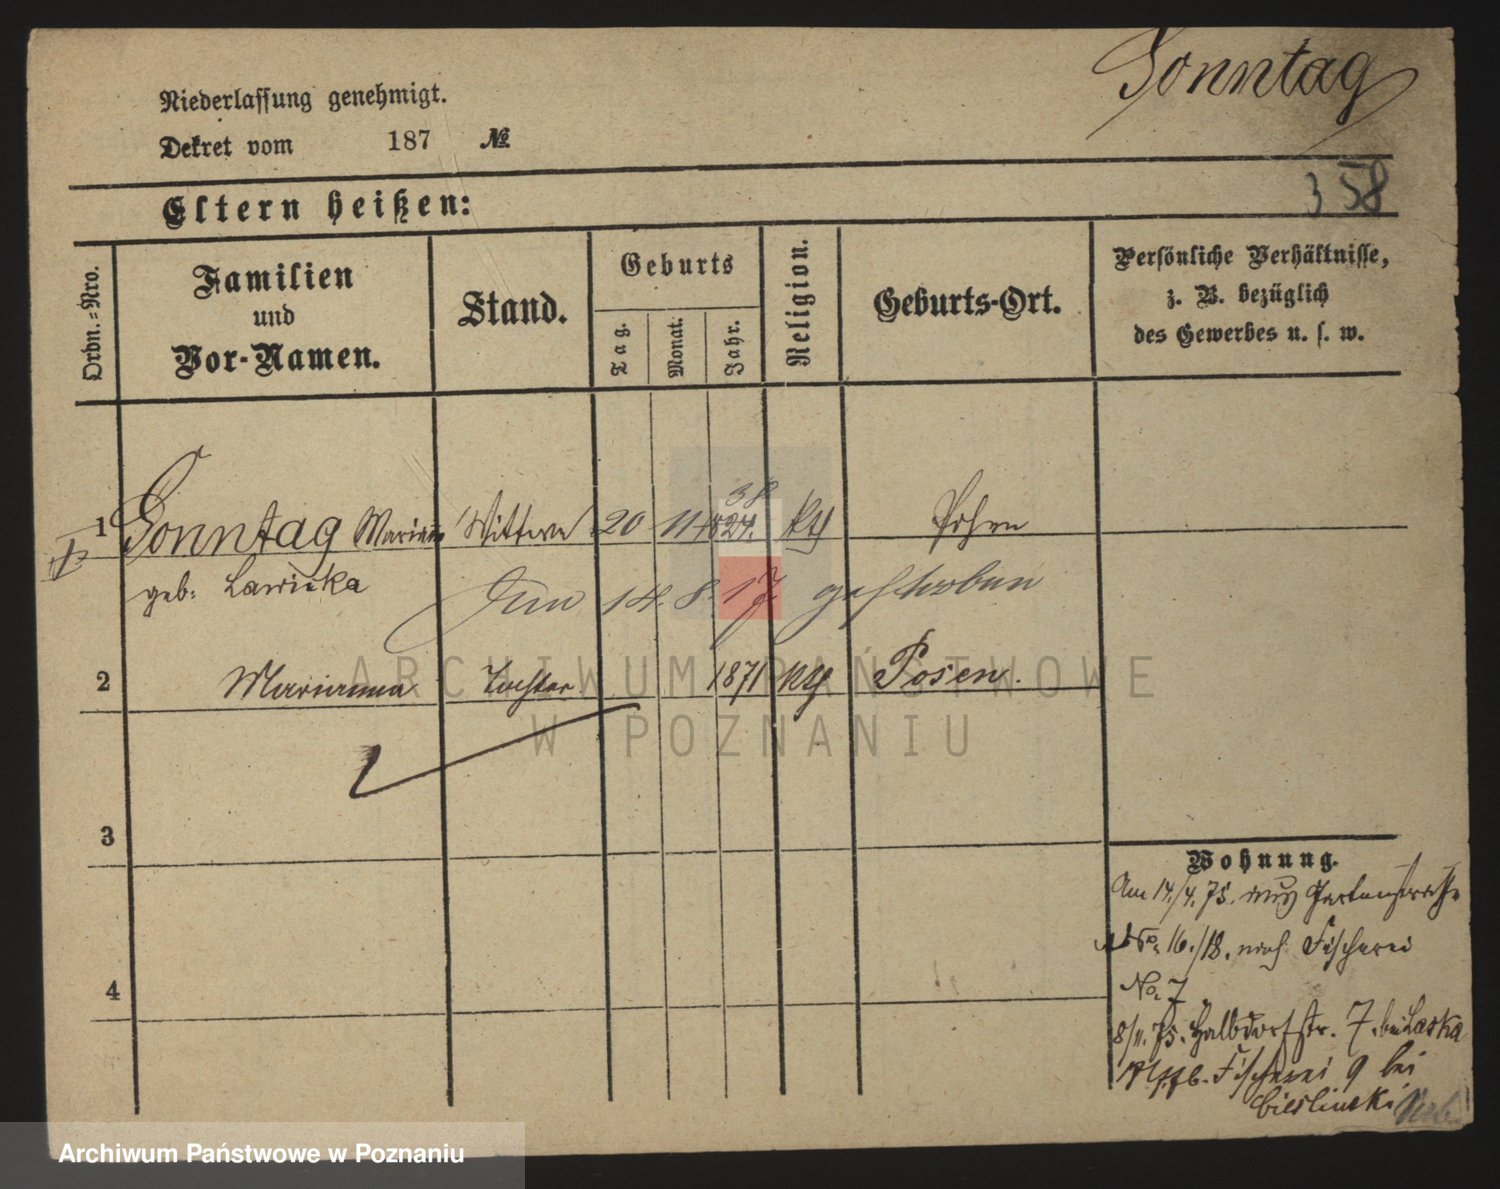 Sonntag
Niederlassung genehmigt.
Dekret vom 187 №
358
Eltern heißen:
Ordn.=Nro.
Familien
und
Vor-Namen.
Stand.
Geburts
Tag.
Monat.
Jahr.
Religion.
Geburts-Ort.
Persönliche Verhältnisse,
z. B. bezüglich
des Gewerbes u. s. w.
38
1 Sonntag Marianna Wittwe 20 11 1827. kth
geb: Lawicka
14. 8. 17 gestorben
2 Marianna Tochter 1871 kth Posen.
3
4
Wohnung.
Am 14./4. 75. aus Gartenstraße
No. 16./18. nach Fischerei
No. 7
8/11. 75. Halbdorfstr. 7. bei Laska
Fischerei 9 bei
Cieslinski
ARCHIWUM PAŃSTWOWE
W POZNANIU
Archiwum Państwowe w Poznaniu